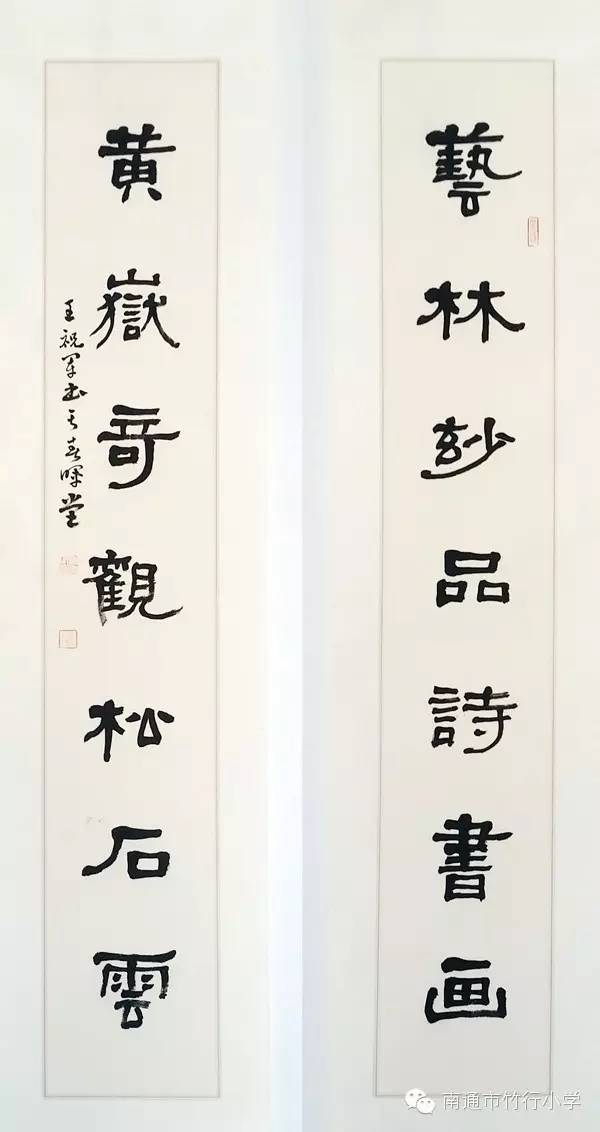 藝林玅品詩書画
黄嶽竒觀松石雲
王祝军书于春晖堂
南通市竹行小学